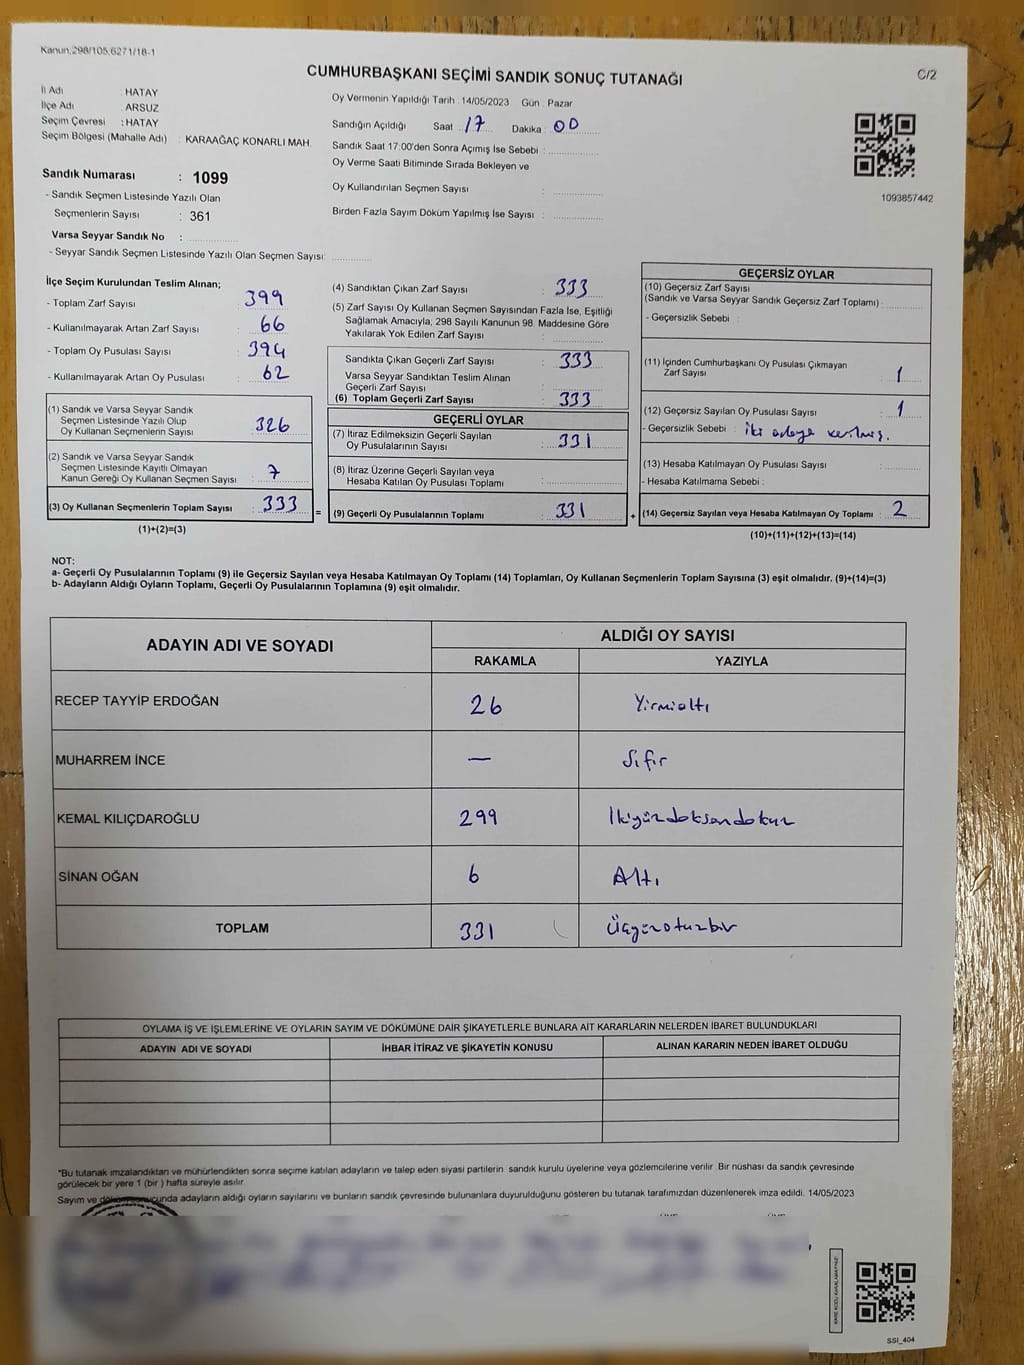 Kanun.298/105,6271/18-1
C/2
CUMHURBAŞKANI SEÇİMİ SANDIK SONUÇ TUTANAĞI
İl Adı : HATAY
İlçe Adı : ARSUZ
Seçim Çevresi : HATAY
Seçim Bölgesi (Mahalle Adı) : KARAAĞAÇ KONARLI MAH.
Sandık Numarası : 1099
- Sandık Seçmen Listesinde Yazılı Olan
Seçmenlerin Sayısı : 361
Varsa Seyyar Sandık No :
- Seyyar Sandık Seçmen Listesinde Yazılı Olan Seçmen Sayısı:
Oy Vermenin Yapıldığı Tarih : 14/05/2023 Gün : Pazar
Sandığın Açıldığı Saat : 17 Dakika : 00
Sandık Saat 17:00'den Sonra Açımış İse Sebebi :
Oy Verme Saati Bitiminde Sırada Bekleyen ve
Oy Kullandırılan Seçmen Sayısı :
Birden Fazla Sayım Döküm Yapılmış İse Sayısı :
1093857442
İlçe Seçim Kurulundan Teslim Alınan;
- Toplam Zarf Sayısı : 399
- Kullanılmayarak Artan Zarf Sayısı : 66
- Toplam Oy Pusulası Sayısı : 394
- Kullanılmayarak Artan Oy Pusulası : 62
(1) Sandık ve Varsa Seyyar Sandık
Seçmen Listesinde Yazılı Olup
Oy Kullanan Seçmenlerin Sayısı : 326
(2) Sandık ve Varsa Seyyar Sandık
Seçmen Listesinde Kayıtlı Olmayan
Kanun Gereği Oy Kullanan Seçmen Sayısı : 7
(3) Oy Kullanan Seçmenlerin Toplam Sayısı : 333
(1)+(2)=(3)
=
(4) Sandıktan Çıkan Zarf Sayısı : 333
(5) Zarf Sayısı Oy Kullanan Seçmen Sayısından Fazla İse, Eşitliği
Sağlamak Amacıyla; 298 Sayılı Kanunun 98. Maddesine Göre
Yakılarak Yok Edilen Zarf Sayısı :
Sandıkta Çıkan Geçerli Zarf Sayısı : 333
Varsa Seyyar Sandıktan Teslim Alınan
Geçerli Zarf Sayısı :
(6) Toplam Geçerli Zarf Sayısı : 333
GEÇERLİ OYLAR
(7) İtiraz Edilmeksizin Geçerli Sayılan
Oy Pusulalarının Sayısı : 331
(8) İtiraz Üzerine Geçerli Sayılan veya
Hesaba Katılan Oy Pusulası Toplamı :
(9) Geçerli Oy Pusulalarının Toplamı : 331
+
GEÇERSİZ OYLAR
(10) Geçersiz Zarf Sayısı
(Sandık ve Varsa Seyyar Sandık Geçersiz Zarf Toplamı) :
- Geçersizlik Sebebi :
(11) İçinden Cumhurbaşkanı Oy Pusulası Çıkmayan
Zarf Sayısı : 1
(12) Geçersiz Sayılan Oy Pusulası Sayısı : 1
- Geçersizlik Sebebi : iki adaya verilmiş.
(13) Hesaba Katılmayan Oy Pusulası Sayısı :
- Hesaba Katılmama Sebebi :
(14) Geçersiz Sayılan veya Hesaba Katılmayan Oy Toplamı : 2
(10)+(11)+(12)+(13)=(14)
NOT:
a- Geçerli Oy Pusulalarının Toplamı (9) ile Geçersiz Sayılan veya Hesaba Katılmayan Oy Toplamı (14) Toplamları, Oy Kullanan Seçmenlerin Toplam Sayısına (3) eşit olmalıdır. (9)+(14)=(3)
b- Adayların Aldığı Oyların Toplamı, Geçerli Oy Pusulalarının Toplamına (9) eşit olmalıdır.
ADAYIN ADI VE SOYADI ALDIĞI OY SAYISI
RAKAMLA YAZIYLA
RECEP TAYYİP ERDOĞAN 26 Yirmialtı
MUHARREM İNCE — Sıfır
KEMAL KILIÇDAROĞLU 299 İkiyüzdoksandokuz
SİNAN OĞAN 6 Altı
TOPLAM 331 Üçyüzotuzbir
OYLAMA İŞ VE İŞLEMLERİNE VE OYLARIN SAYIM VE DÖKÜMÜNE DAİR ŞİKAYETLERLE BUNLARA AİT KARARLARIN NELERDEN İBARET BULUNDUKLARI
ADAYIN ADI VE SOYADI İHBAR İTİRAZ VE ŞİKAYETİN KONUSU ALINAN KARARIN NEDEN İBARET OLDUĞU
"Bu tutanak imzalandıktan ve mühürlendikten sonra seçime katılan adayların ve talep eden siyasi partilerin sandık kurulu üyelerine veya gözlemcilerine verilir. Bir nüshası da sandık çevresinde
görülecek bir yere 1 (bir ) hafta süreyle asılır.
Sayım ve dökum sonucunda adayların aldığı oyların sayılarını ve bunların sandık çevresinde bulunanlara duyurulduğunu gösteren bu tutanak tarafımızdan düzenlenerek imza edildi. 14/05/2023
SSI_404